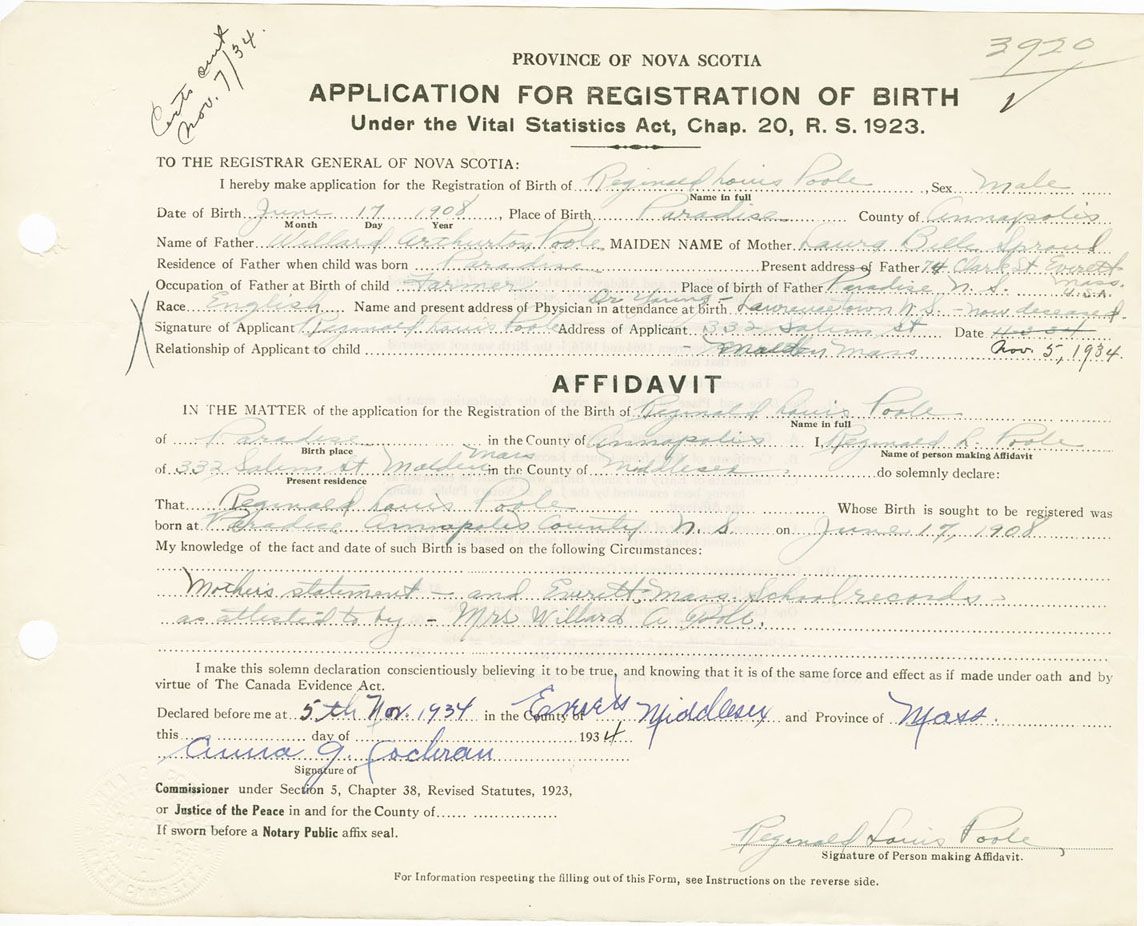 Certs sent
Nov. 7/34.
3920
PROVINCE OF NOVA SCOTIA
APPLICATION FOR REGISTRATION OF BIRTH
Under the Vital Statistics Act, Chap. 20, R. S. 1923.
TO THE REGISTRAR GENERAL OF NOVA SCOTIA:
I hereby make application for the Registration of Birth of Reginald Louis Poole, Sex Male
Name in full
Date of Birth June 17 1908, Place of Birth Paradise County of Annapolis
Month Day Year
Name of Father Willard Arthurton Poole MAIDEN NAME of Mother Laura Bille Sproul
Residence of Father when child was born Paradise Present address of Father 74 Clark St Everett
Mass.
Occupation of Father at Birth of child Farmer Place of birth of Father Paradise N. S. U.S.A.
Race English Name and present address of Physician in attendance at birth Dr Young - Lawrencetown N.S - now deceased.
Signature of Applicant Reginald Louis Poole Address of Applicant 332 Salem St Date
Relationship of Applicant to child - Malden Mass Nov. 5, 1934.
AFFIDAVIT
IN THE MATTER of the application for the Registration of the Birth of Reginald Louis Poole
Name in full
of Paradise in the County of Annapolis I, Reginald L. Poole
Birth place Name of person making Affidavit
of 332 Salem St. Malden Mass in the County of Middlesex do solemnly declare:
Present residence
That Reginald Louis Poole Whose Birth is sought to be registered was
born at Paradise Annapolis County N. S. on June 17, 1908
My knowledge of the fact and date of such Birth is based on the following Circumstances:
Mothers statement - and Everett Mass School records -
as attested to by - Mrs Willard A Poole.
I make this solemn declaration conscientiously believing it to be true, and knowing that it is of the same force and effect as if made under oath and by
virtue of The Canada Evidence Act.
Declared before me at 5th Nov. 1934 in the County of Middlesex and Province of Mass.
this day of 1934
Anna G. Cochran
Signature of
Commissioner under Section 5, Chapter 38, Revised Statutes, 1923,
or Justice of the Peace in and for the County of
If sworn before a Notary Public affix seal.
Reginald Louis Poole
Signature of Person making Affidavit.
For Information respecting the filling out of this Form, see Instructions on the reverse side.